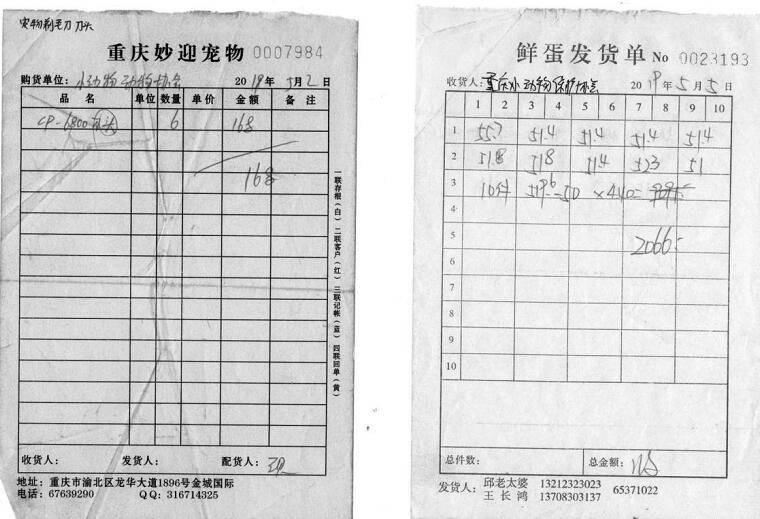 宠物剃毛刀 刀头
重庆妙迎宠物 0007984
购货单位: 小动物 协会 2019年5月2日
品 名 单位 数量 单价 金额 备 注
CP-6800 刀头 6 168
168
一联存根(白) 二联客户(红) 三联记帐(蓝) 四联回单(黄)
收货人: 发货人: 配货人:
地址: 重庆市渝北区龙华大道1896号金城国际
电话: 67639290 QQ: 316714325
鲜蛋发货单 No 0023193
收货人: 重庆小动物保护协会 2019年5月5日
1 2 3 4 5 6 7 8 9 10
1 55.7 51.4 51.4 51.4 51.4
2 51.8 518 51.4 523 51
3 10件 519.6-50 ×440=
4
5 2066:
6
7
8
9
10
总件数: 总金额:
发货人: 邱老太婆 13212323023 65371022
王长鸿 13708303137